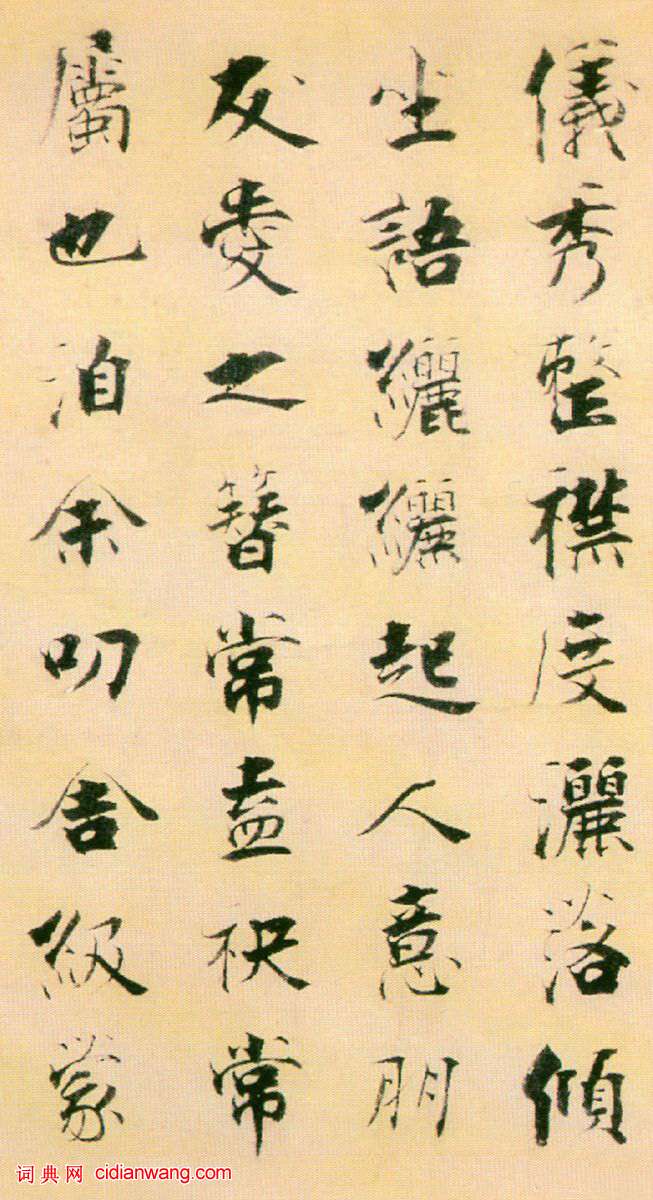 儀秀整襟度灑落傾
坐語纚纚起人意朋
友愛之簪常盍袂常
屬也洎余叨舍級蒙
词典网 cidianwang.com